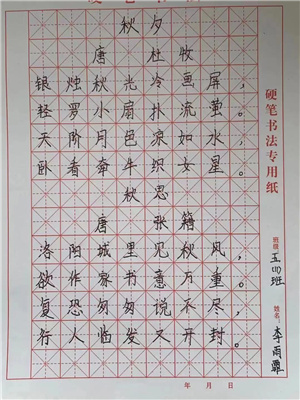 秋夕
唐 杜牧
银烛秋光冷画屏，
轻罗小扇扑流萤。
天阶月色凉如水，
卧看牵牛织女星。
秋思
唐 张籍
洛阳城里见秋风，
欲作家书意万重。
复恐匆匆说不尽，
行人临发又开封。
硬笔书法专用纸
班级：五(4)班
姓名：李雨霏
年 月 日